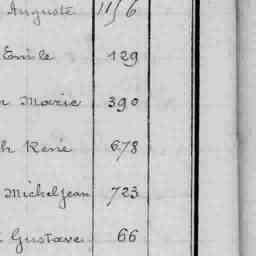 Auguste 1156
Emile 129
Marie 390
h René 678
Michel Jean 723
Gustave 66